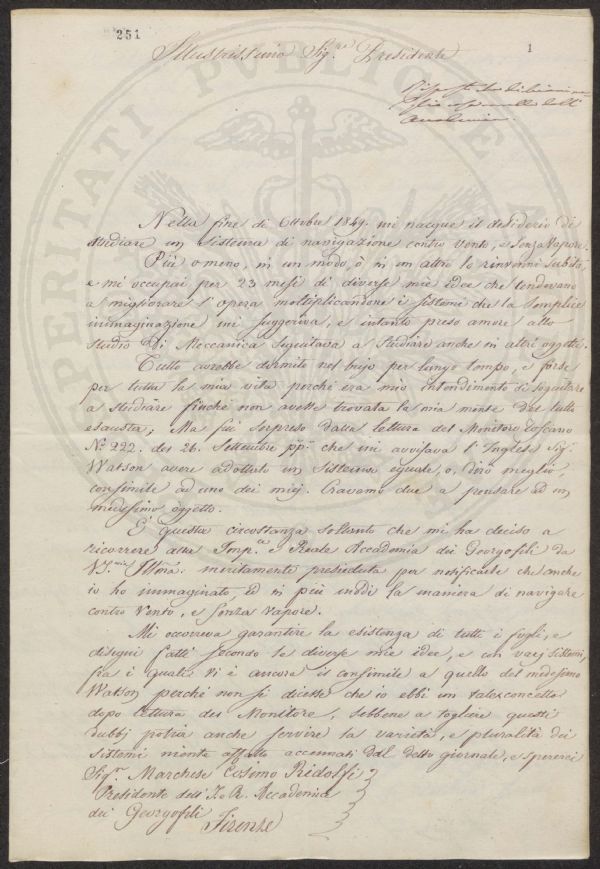 251
1
Illustrissimo Sig.re Presidente
Nella fine di Ottobre 1849. mi nacque il desiderio di
studiare un sistema di navigazione contro vento, e senza vapore.
Più o meno, in un modo, ò in un altro lo rinvenni subito,
e mi occupai per 23 mesi di diverse mie idee che tendevano
a migliorare l'opera moltiplicandone i sistemi che la semplice
immaginazione mi suggeriva, e intanto preso amore allo
studio di Meccanica seguitava a studiare anche in altri oggetti.
Tutto avrebbe dormito nel bujo per lungo tempo, e forse
per tutta la mia vita perchè era mio intendimento di seguitare
a studiare finchè non avesse trovata la mia mente del tutto
esausta; Ma fui sorpreso dalla lettura del Monitore Toscano
N.o 222. del 26. Settembre pp. che mi avvisava l'Inglese Sig.
Watson avere adottato un sistema eguale, o, dirò meglio,
consimile ad uno dei miej. Eravamo due a pensare ad un
medesimo oggetto.
E' questa circostanza soltanto che mi ha deciso a
ricorrere alla Imp. e Reale Accademia dei Georgofili da
V.S. Illma. meritamente presieduta per notificarle che anche
io ho immaginato, ed in più modi la maniera di navigare
contro vento, e senza vapore.
Mi occorreva garantire la esistenza di tutti i fogli, e
disegni fatti secondo le diverse mie idee, e con varj sistemi,
fra i quali vi è ancora il consimile a quello del medesimo
Watson perchè non si dicesse che io ebbi un tale concetto
dopo lettura del Monitore, sebbene a togliere questi
dubbj potria anche servire la varietà, e pluralità dei
sistemi niente affatto accennati dal detto giornale, e
Sig.r Marchese Cosimo Ridolfi
Presidente dell'I. e R. Accademia
dei Georgofili
Firenze
PERITATI PUBLICAE